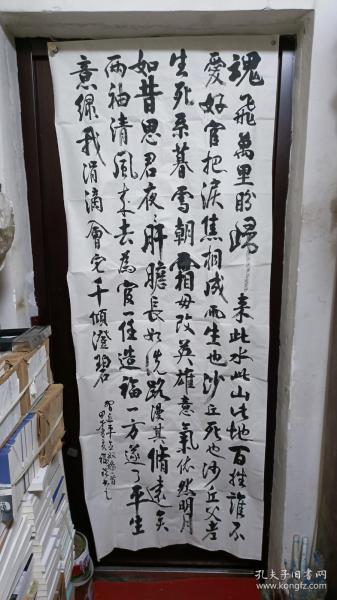 魂飛萬里盼歸來此水此山此地百姓誰不
愛好官把淚焦桐成雨生也沙丘死也沙丘父老
生死系暮雪朝霜毋改英雄意氣依然明月
如昔思君夜夜肝膽長如洗路漫其脩遠矣
兩袖清風來去為官一任造福一方遂了平生
意綠我涓滴會它千傾澄碧
孔夫子旧书网
www.kongfz.com